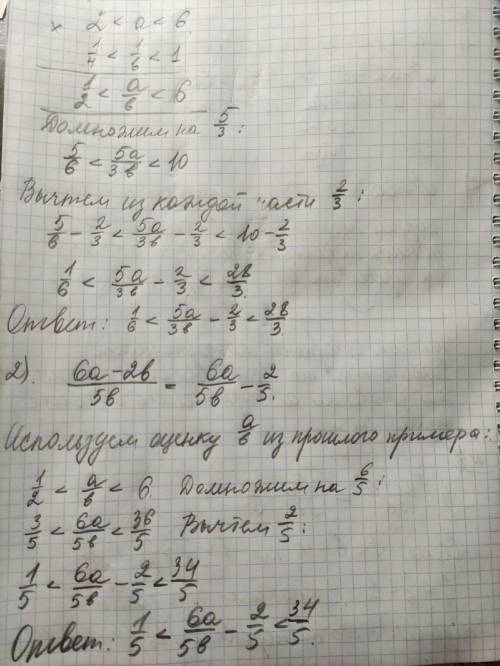 × 2 < a < 6
1/4 < 1/в < 1
1/2 < a/в < 6
Домножим на 5/3:
5/6 < 5a/3в < 10
Вычтем из каждой части 2/3:
5/6 - 2/3 < 5a/3в - 2/3 < 10 - 2/3
1/6 < 5a/3в - 2/3 < 28/3.
Ответ: 1/6 < 5a/3в - 2/3 < 28/3.
2). 6a-2в/5в = 6a/5в - 2/5.
Используем оценку a/в из прошлого примера:
1/2 < a/в < 6. Домножим на 6/5:
3/5 < 6a/5в < 36/5 Вычтем 2/5:
1/5 < 6a/5в - 2/5 < 34/5
Ответ: 1/5 < 6a/5в - 2/5 < 34/5.